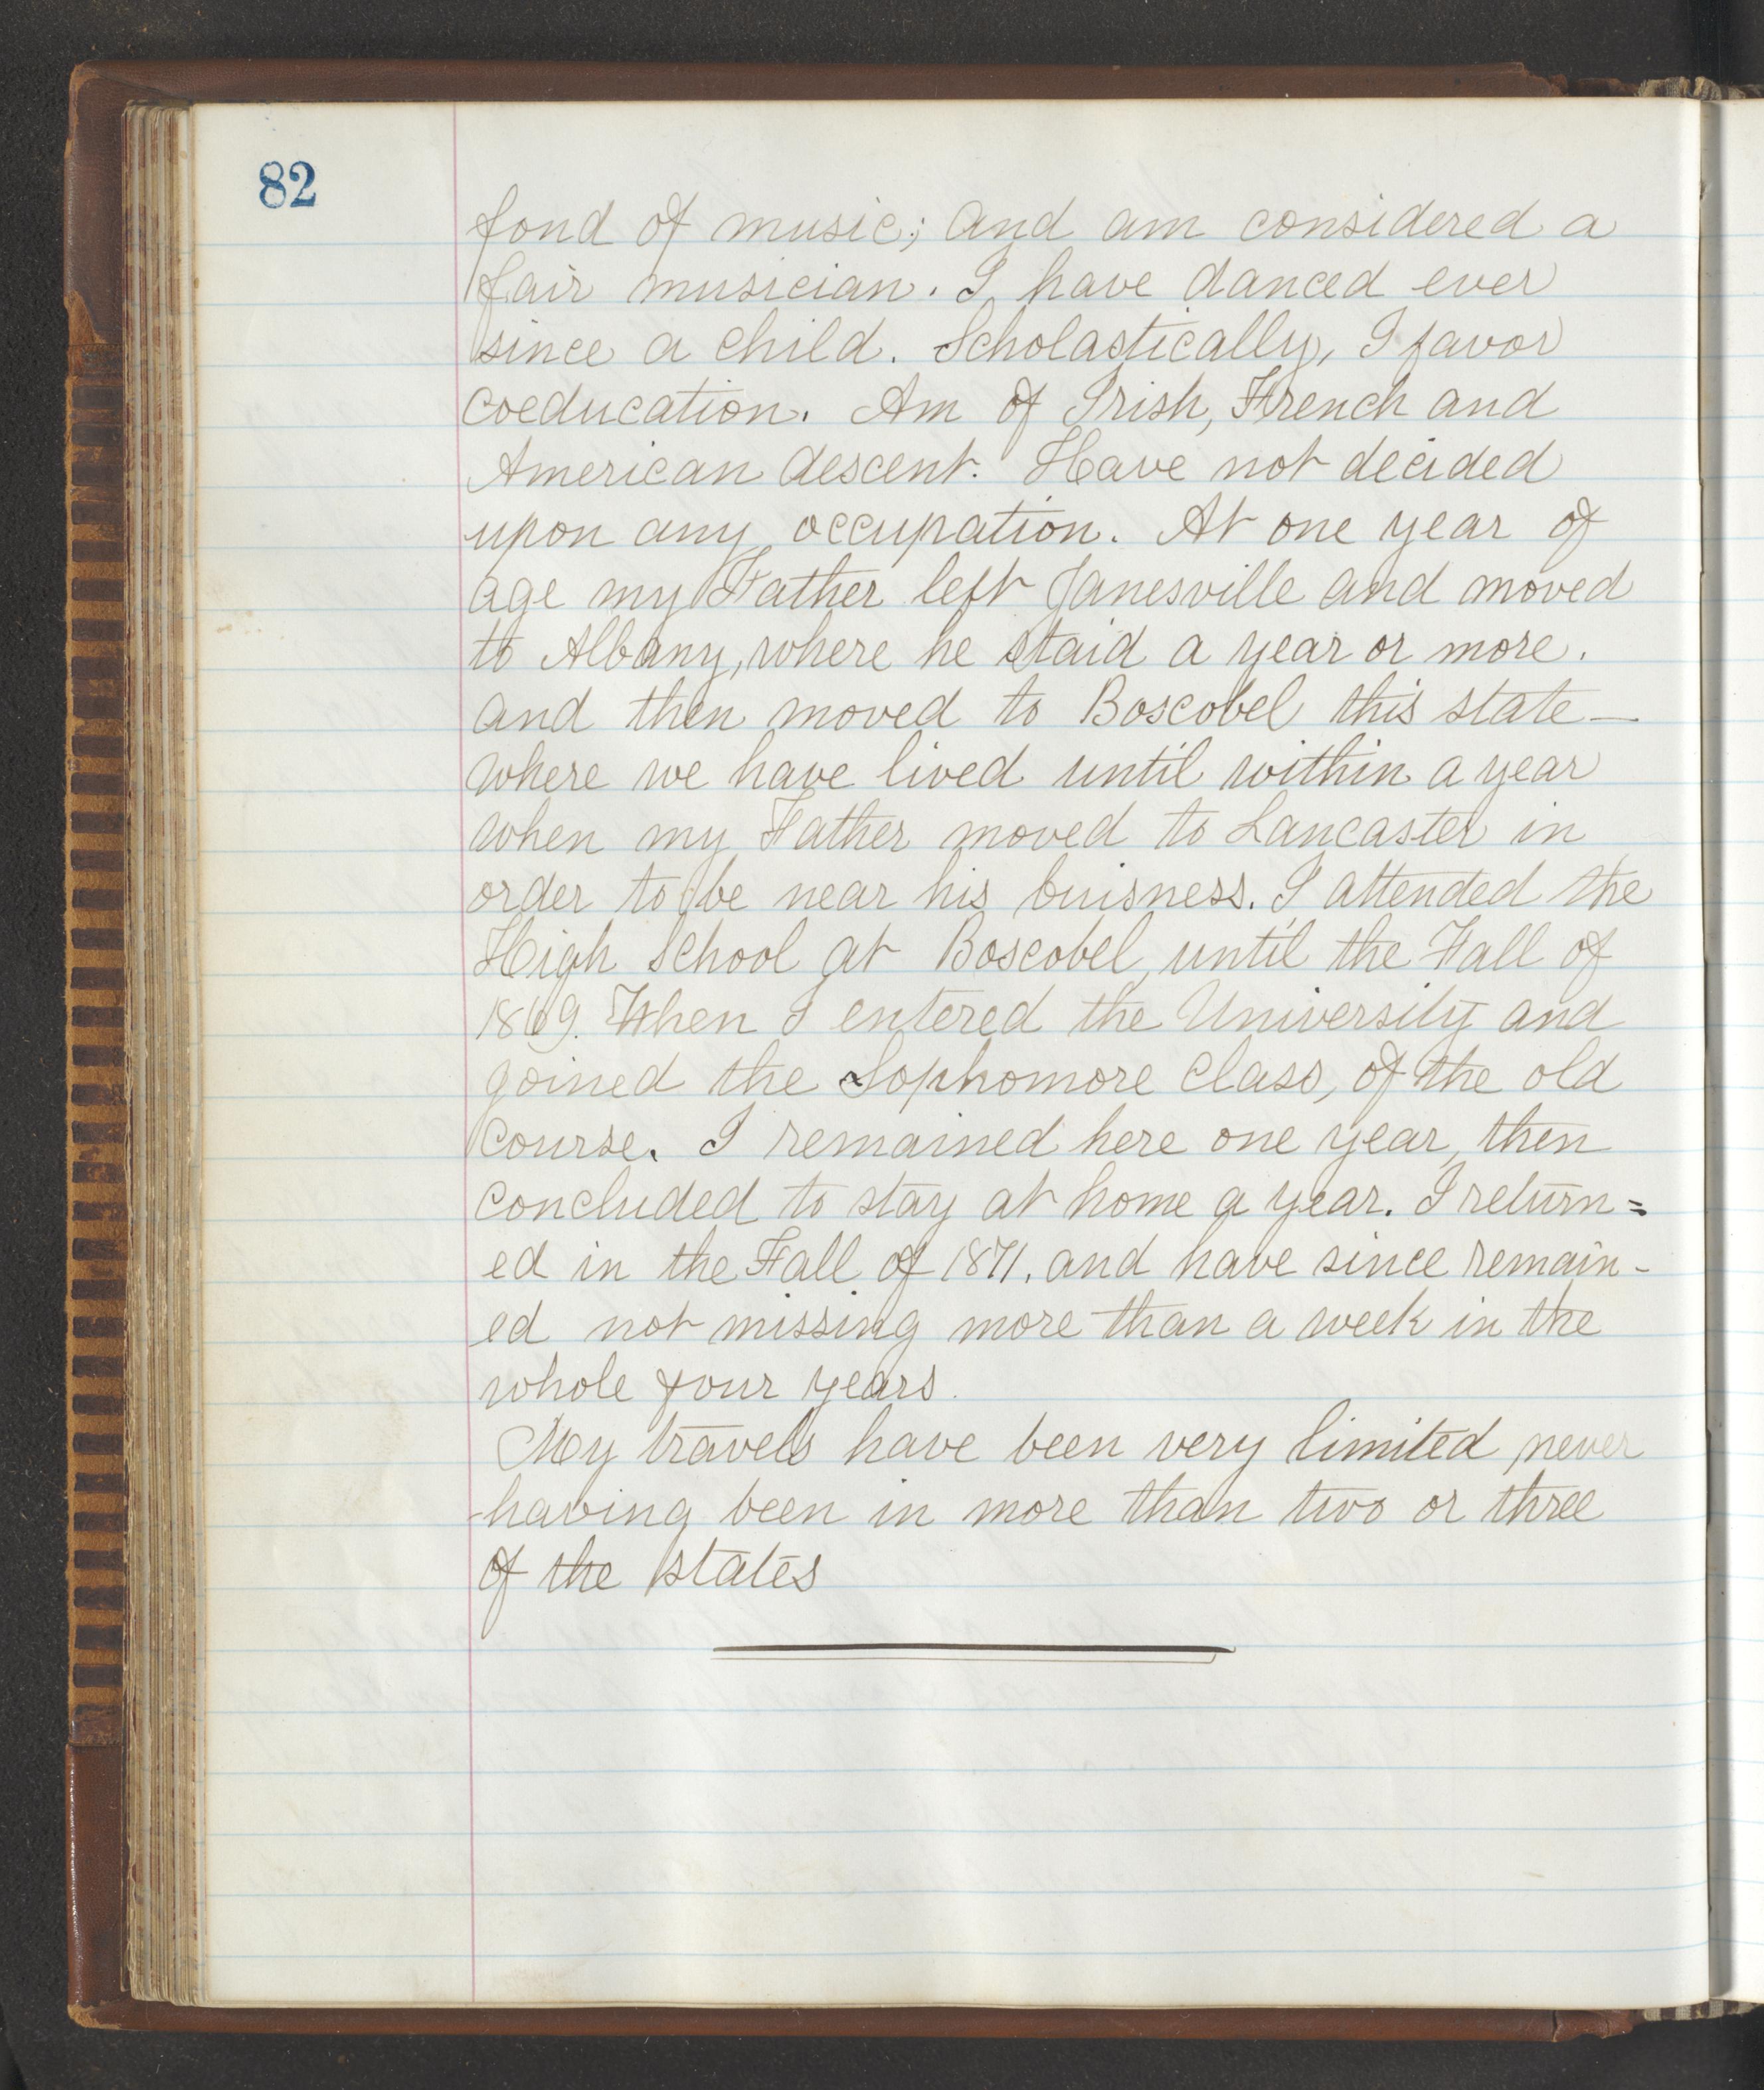 82
fond of music; and am considered a
fair musician. I have danced ever
since a child. Scholastically, I favor
coeducation. Am of Irish, French and
American descent. Have not decided
upon any occupation. At one year of
age my Father left Janesville and moved
to Albany, where he staid a year or more.
and then moved to Boscobel this state—
where we have lived until within a year
when my Father moved to Lancaster in
order to be near his buisness. I attended the
High School at Boscobel, until the Fall of
1869. When I entered the University and
joined the Sophomore Class, of the old
course. I remained here one year, then
concluded to stay at home a year. I return=
ed in the Fall of 1871. and have since remain-
ed not missing more than a week in the
whole four years.
My travels have been very limited never
having been in more than two or three
of the states